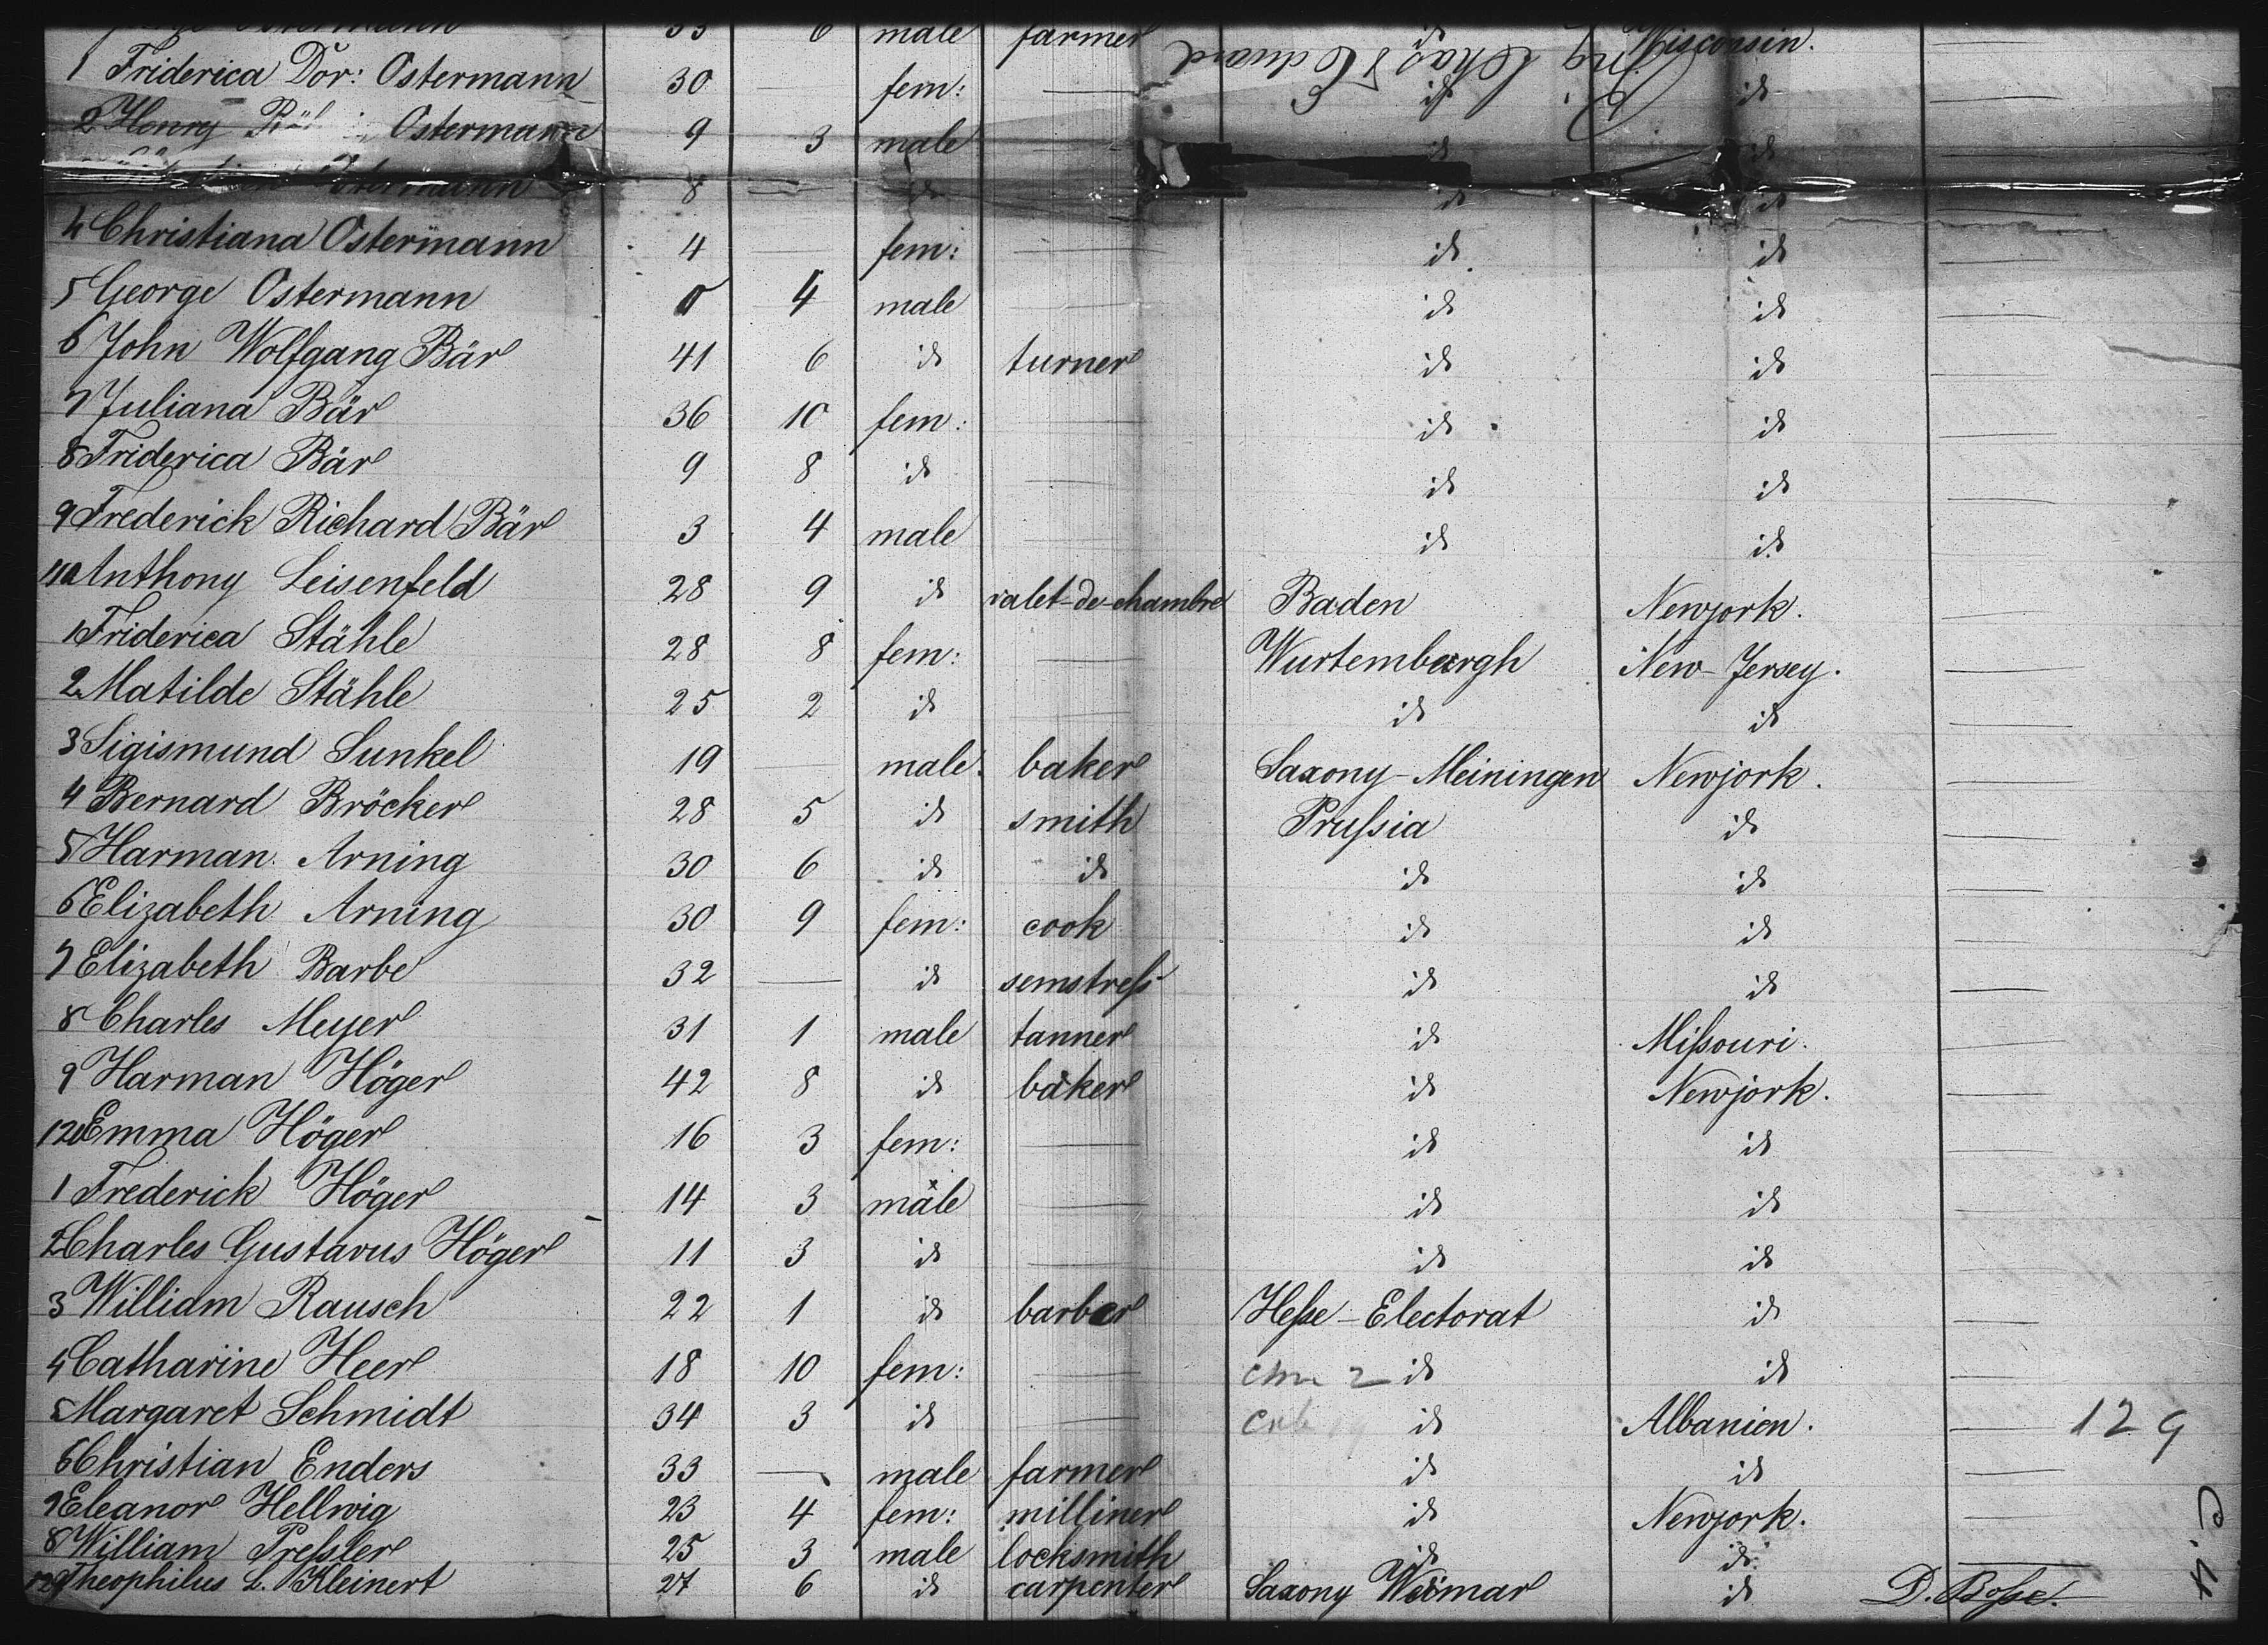 Ostermann 6 male farmer id Wisconsin.
Brig Chas & Edward
1 Friderica Dor: Ostermann 30 — fem: — id id —
2 Henry Ostermann 9 3 male — id id —
Ostermann 8 — id id id —
4 Christiana Ostermann 4 — fem: — id id —
5 George Ostermann 0 4 male — id id —
6 John Wolfgang Bär 41 6 id turner id id —
7 Juliana Bär 36 10 fem: — id id —
8 Friderica Bär 9 8 id — id id —
9 Frederick Richard Bär 3 4 male — id id —
110 Anthony Leisenfeld 28 9 id valet-de-chambre Baden Newjork. —
1 Friderica Stähle 28 8 fem: — Wurtembergh New-Jersey. —
2 Matilde Stähle 25 2 id — id id —
3 Sigismund Sunkel 19 — male baker Saxony-Meiningen Newjork. —
4 Bernard Bröcker 28 5 id smith Prußsia id —
5 Harman Arning 30 6 id id id id —
6 Elizabeth Arning 30 9 fem: cook id id —
7 Elizabeth Barbe 32 — id semstreß id id —
8 Charles Meyer 31 1 male tanner id Mißouri. —
9 Harman Höger 42 8 id baker id Newjork. —
120 Emma Höger 16 3 fem: — id id —
1 Frederick Höger 14 3 male — id id —
2 Charles Gustavus Höger 11 3 id — id id —
3 William Rausch 22 1 id barber Heße-Electorat id —
4 Catharine Heer 18 10 fem: — id id —
5 Margaret Schmidt 34 3 id — id Albanien. — 129
6 Christian Enders 33 — male farmer id id —
7 Eleanor Hellwig 23 4 fem: milliner id Newjork. —
8 William Preßler 25 3 male locksmith id id —
129 Theophilus L. Kleinert 27 6 id carpenter Saxony Weimar id D. Boße.